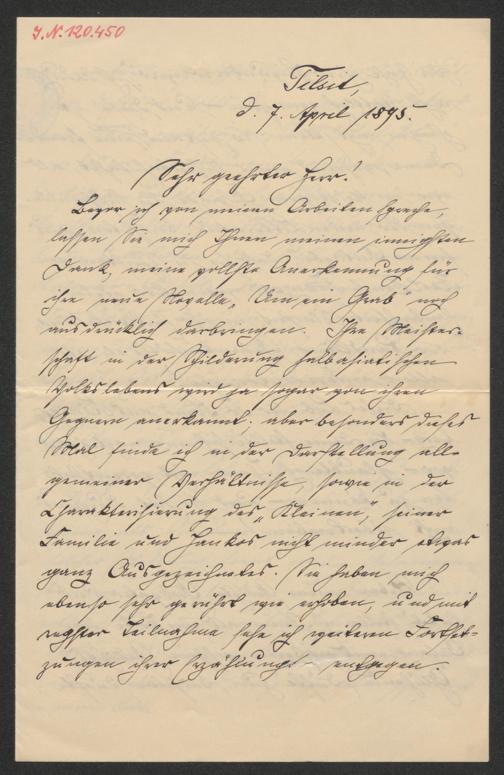 J.N. 120.450
Tilsit,
d. 7. April 1895.
Sehr geehrter Herr!
Bevor ich von meinen Arbeiten spreche,
lassen Sie mich Ihnen meinen innigsten
Dank, meine vollste Anerkennung für
ihre neue Novelle „Um ein Grab" noch
ausdrücklich darbringen. Ihre Meister-
schaft in der Schilderung halbasiatischen
Volkslebens wird ja sogar von ihren
Gegnern anerkannt; aber besonders dieses
Mal finde ich in der Darstellung all-
gemeiner Verhältnisse, sowie in der
Charakterisierung des „Kleinen", seiner
Familie und Jankos nicht minder etwas
ganz Ausgezeichnetes. Sie haben mich
ebenso sehr gerührt wie erhoben, und mit
regster Teilnahme sehe ich weiteren Fortset-
zungen ihrer Erzählung entgegen.